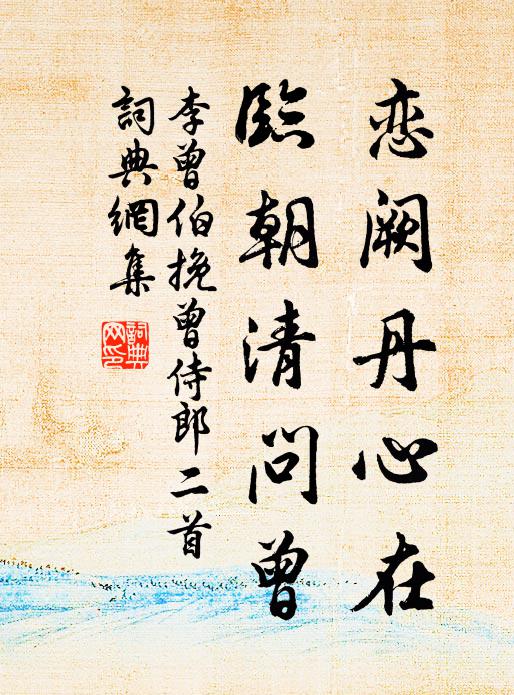 恋阙丹心在
临朝清问曾
李曾伯挽曾侍郎二首
詞典網集
詞典
网印